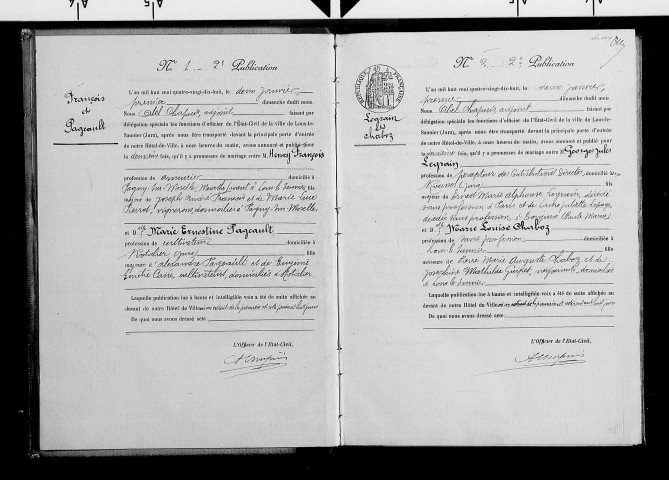 Nº 1 - 2e Publication
François
et
Pageault
L'an mil huit cent quatre-vingt-dix-huit, le deux janvier,
premier dimanche dudit mois.
Nous Abel Chapuis, adjoint faisant par
délégation spéciale les fonctions d'officier de l'État-Civil de la ville de Lons-le-
Saunier (Jura), après nous être transporté devant la principale porte d'entrée
de notre Hôtel-de-Ville, à onze heures du matin, avons annoncé et publié pour
la deuxième fois, qu'il y a promesses de mariage entre M. Henry François
profession de armurier domicilié à
Pagny-sur-Moselle, Meurthe fils
majeur de Joseph André François et de Marie
Pierrot, vignerons, domiciliés à Pagny-sur-Moselle
et Dlle Marie Ernestine Pageault
profession de cultivateur domiciliée à
Rotalier (Jura) fille
majeure d'Alexandre Pageault et de Eugénie
cultivateurs, domiciliés à Rotalier
Laquelle publication lue à haute et intelligible voix a été de suite affichée au
devant de notre Hôtel de Ville
De quoi nous avons dressé acte
L'Officier de l'État-Civil,
Nº 2 - 2e Publication
RÉPUBLIQUE FRANÇAISE
Legrain
et
Chaboz
L'an mil huit cent quatre-vingt-dix-huit, le deux janvier,
premier dimanche dudit mois.
Nous Abel Chapuis, adjoint faisant par
délégation spéciale les fonctions d'officier de l'État-Civil de la ville de Lons-le-
Saunier (Jura), après nous être transporté devant la principale porte d'entrée
de notre Hôtel-de-Ville, à onze heures du matin, avons annoncé et publié pour
la deuxième fois, qu'il y a promesses de mariage entre M. Georges Jules
Legrain
profession de percepteur des Contributions directes, domicilié à
(Jura) fils
majeur de Ernest Marie Alphonse Legrain, décédé
sans profession à Paris et de
décédée sans profession, à (Haute Marne)
et Dlle Marie Louise Chaboz
profession de sans profession
Lons le Saunier fille
de Pierre Marie Auguste Chaboz et de
Joséphine Mathilde domiciliés
à Lons le Saunier
Laquelle publication lue à haute et intelligible voix a été de suite affichée au
devant de notre Hôtel de Ville
De quoi nous avons dressé acte
L'Officier de l'État-Civil,